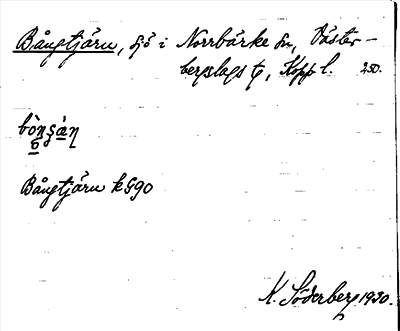 Bångtjärn, sjö i Norrbärke sn, Väster-
bergslags tg, Kopp l. 250.
Bångtjärn k 590
K. Söderberg 1930.